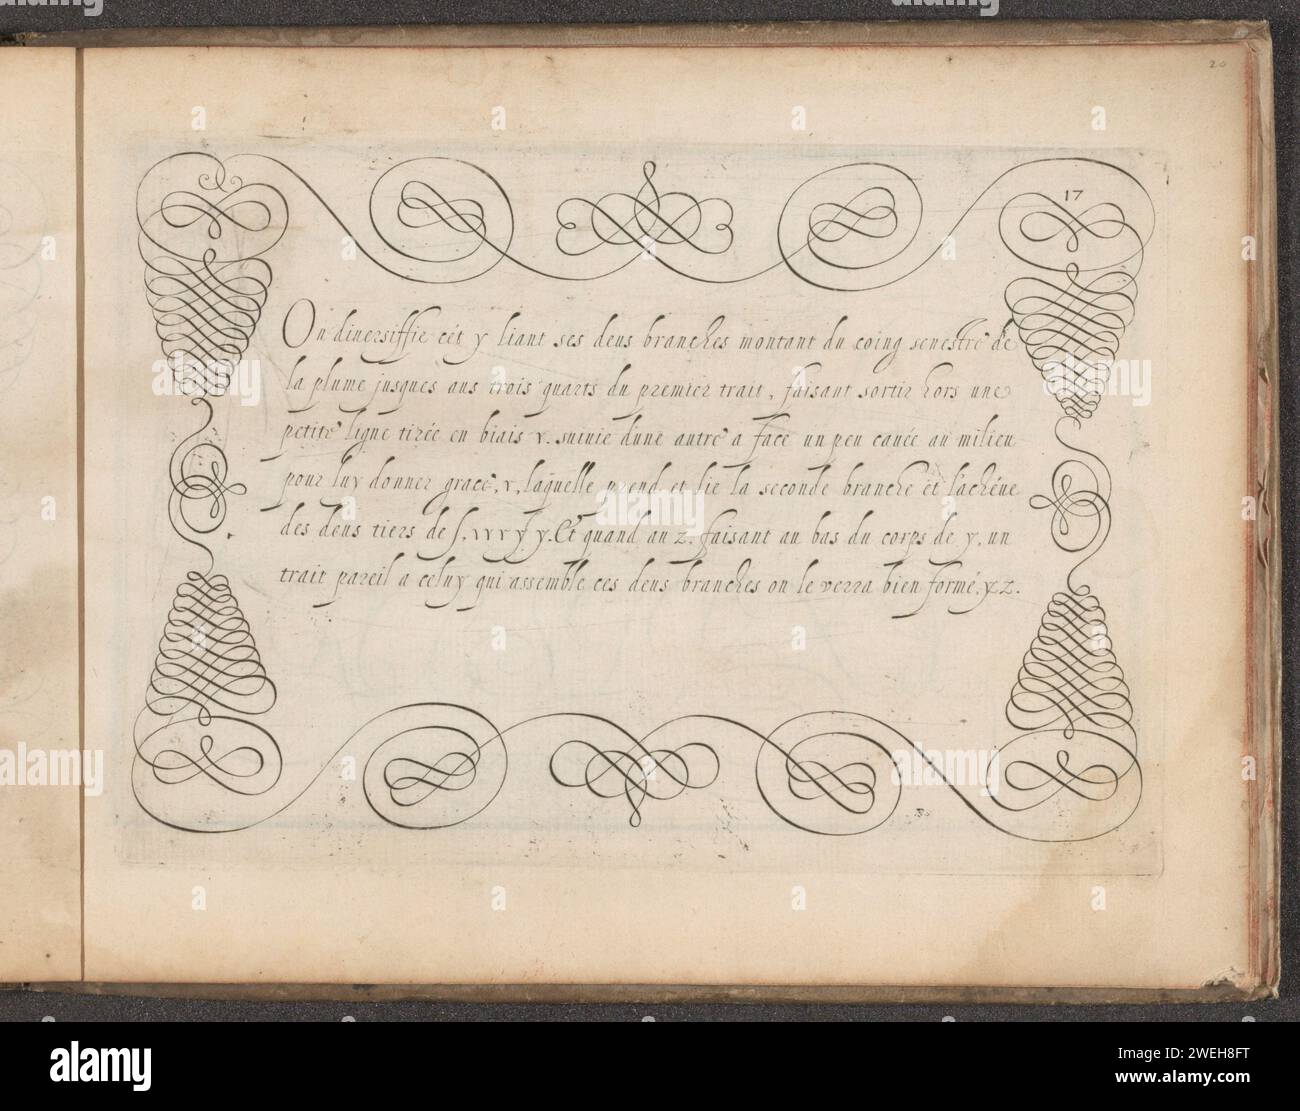 20
17
On diversiffie cét y liant ses deus branches montant du coing senestre de
la plume jusques aus trois quarts du premier trait, faisant sortir hors une
petite ligne tirée en biais v. suivie dune autre a face un peu cavée au milieu
pour luy donner grace, v, laquelle prend et lie la seconde branche et l'achéve
des deus tiers de ſ, v v v y y. Et quand au z. faisant au bas du corps de y, un
trait pareil a celuy qui assemble ces deus branches on le verra bien formé. y z.
alamy
Image ID: 2WEH8FT
www.alamy.com